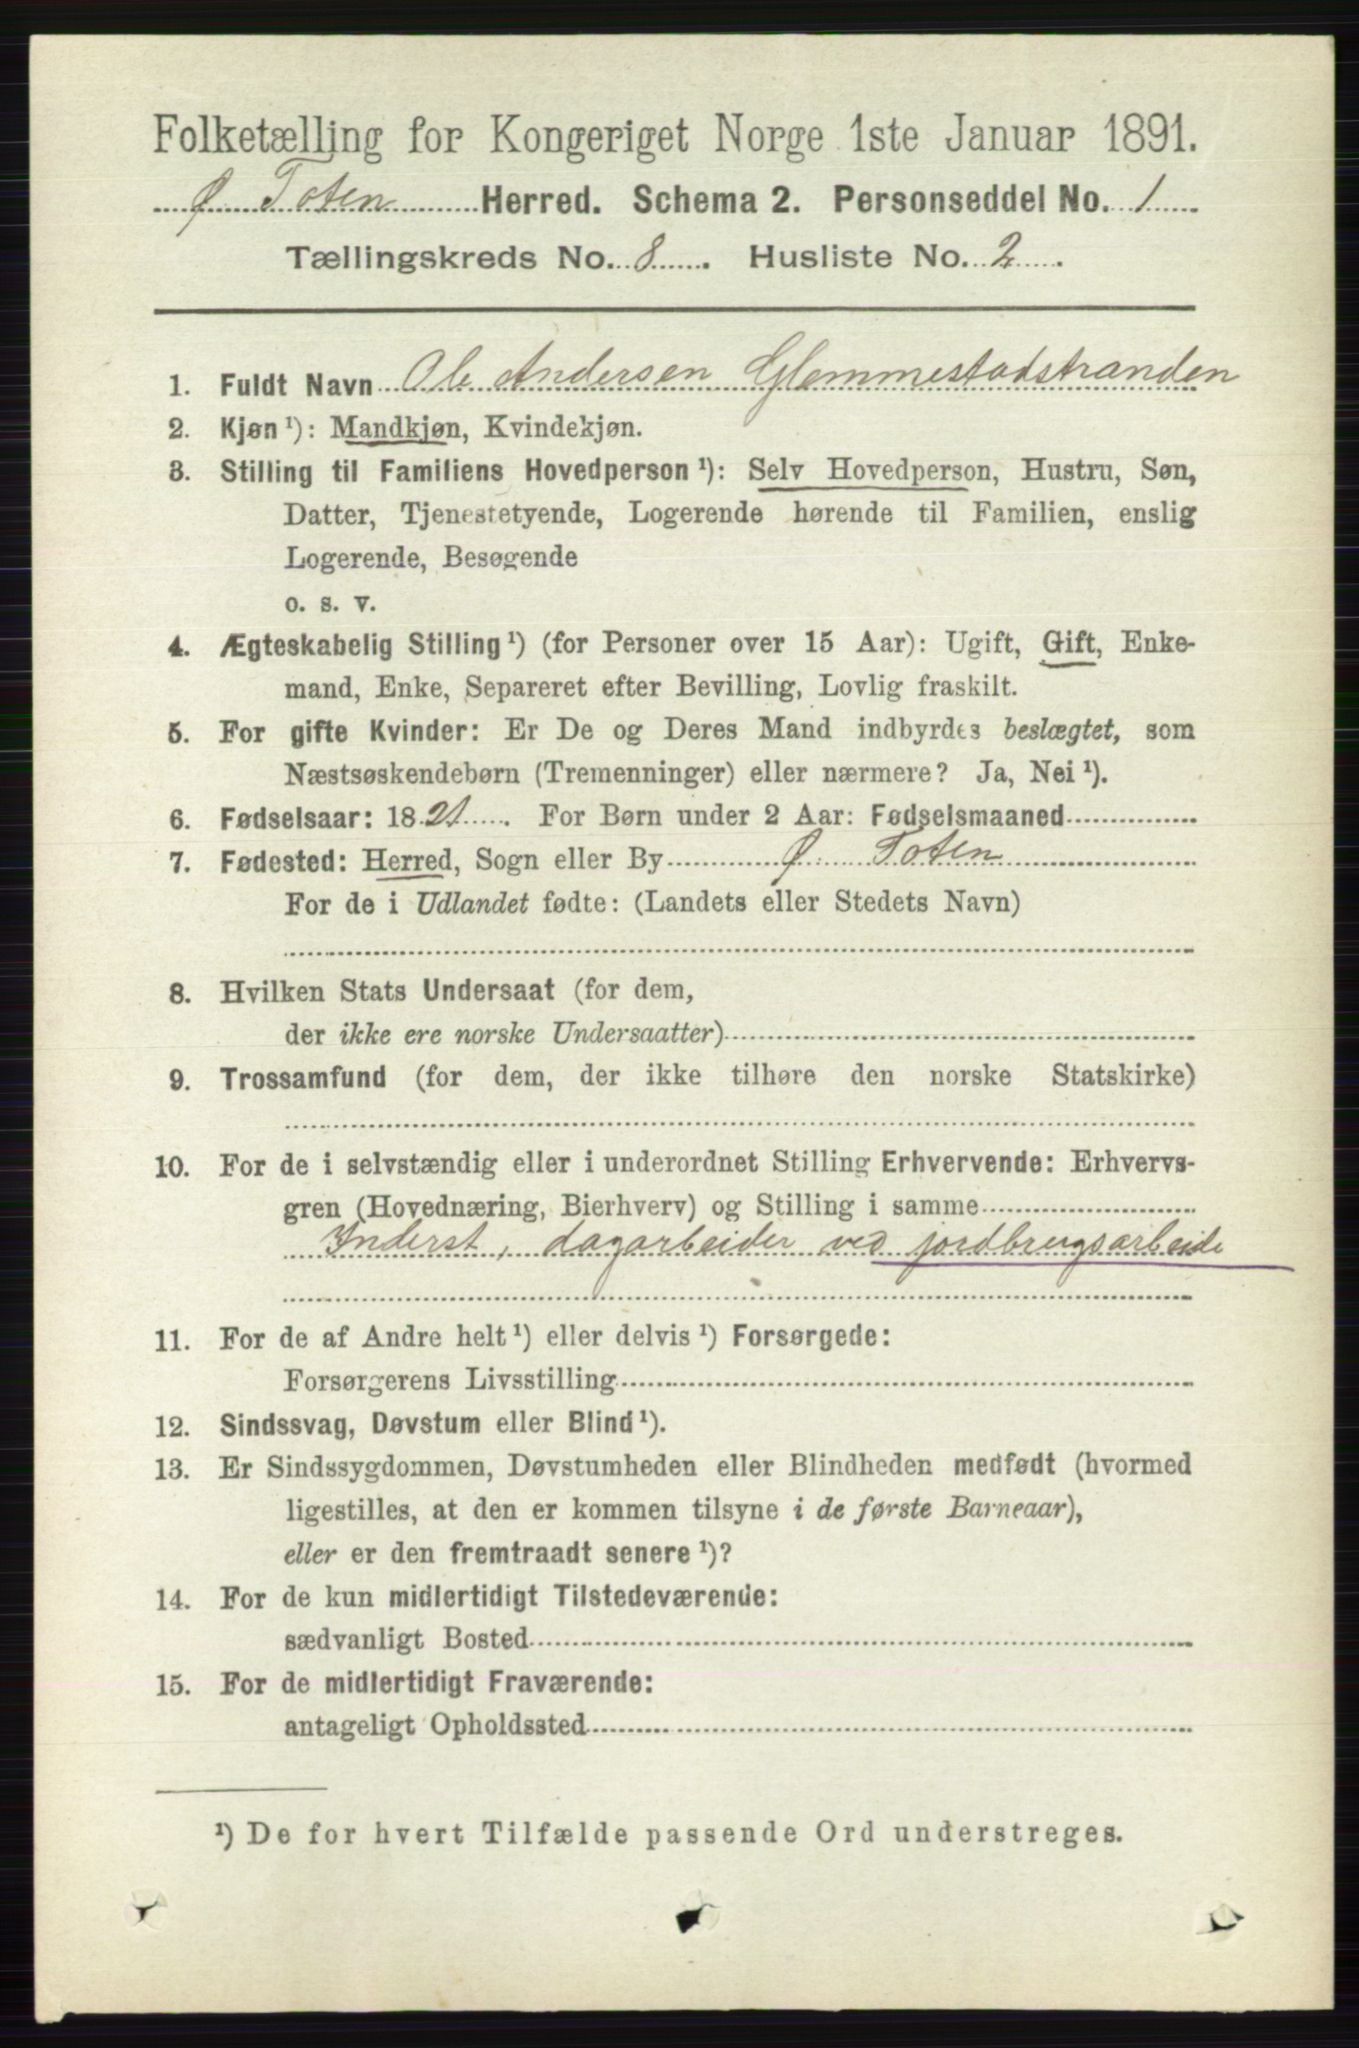 Folketælling for Kongeriget Norge 1ste Januar 1891.
Ø. Toten Herred. Schema 2. Personseddel No. 1
Tællingskreds No. 8. Husliste No. 2.
1. Fuldt Navn Ole Andersen Glemmestadstranden
2. Kjøn ¹): Mandkjøn, Kvindekjøn.
3. Stilling til Familiens Hovedperson ¹): Selv Hovedperson, Hustru, Søn,
Datter, Tjenestetyende, Logerende hørende til Familien, enslig
Logerende, Besøgende
o. s. v.
4. Ægteskabelig Stilling ¹) (for Personer over 15 Aar): Ugift, Gift, Enke-
mand, Enke, Separeret efter Bevilling, Lovlig fraskilt.
5. For gifte Kvinder: Er De og Deres Mand indbyrdes beslægtet, som
Næstsøskendebørn (Tremenninger) eller nærmere? Ja, Nei ¹).
6. Fødselsaar: 1821. For Børn under 2 Aar: Fødselsmaaned
7. Fødested: Herred, Sogn eller By Ø. Toten
For de i Udlandet fødte: (Landets eller Stedets Navn)
8. Hvilken Stats Undersaat (for dem,
der ikke ere norske Undersaatter)
9. Trossamfund (for dem, der ikke tilhøre den norske Statskirke)
10. For de i selvstændig eller i underordnet Stilling Erhvervende: Erhvervs-
gren (Hovednæring, Bierhverv) og Stilling i samme
Inderst, dagarbeider ved jordbrugsarbeide
11. For de af Andre helt ¹) eller delvis ¹) Forsørgede:
Forsørgerens Livsstilling
12. Sindssvag, Døvstum eller Blind ¹).
13. Er Sindssygdommen, Døvstumheden eller Blindheden medfødt (hvormed
ligestilles, at den er kommen tilsyne i de første Barneaar),
eller er den fremtraadt senere ¹)?
14. For de kun midlertidigt Tilstedeværende:
sædvanligt Bosted
15. For de midlertidigt Fraværende:
antageligt Opholdssted
¹) De for hvert Tilfælde passende Ord understreges.